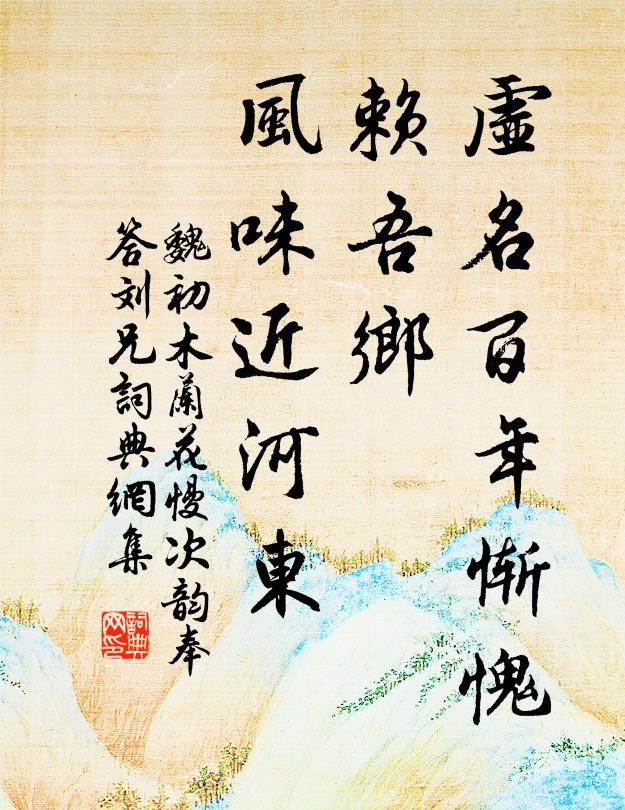 虛名百年慚愧
賴吾鄉
風味近河東
魏初木蘭花慢次韵奉
答刘兄詞典網集
詞典
网印